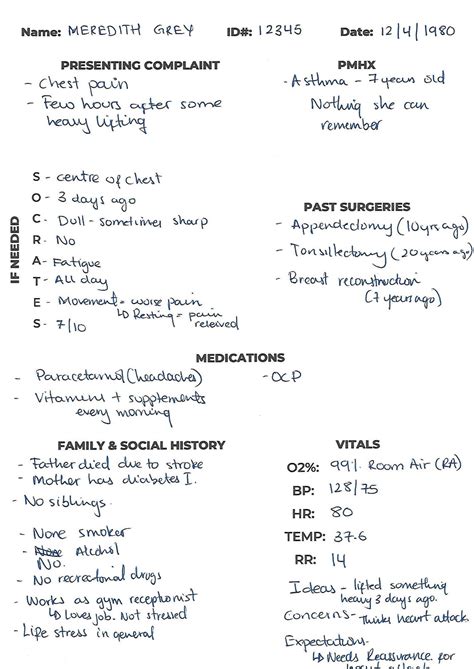 Name: MEREDITH GREY ID#: 12345 Date: 12/4/1980
PRESENTING COMPLAINT
- Chest pain
- Few hours after some
heavy lifting
PMHX
- Asthma - 7 years old
Nothing she can
remember
IF NEEDED
S - centre of chest
O - 3 days ago
C - Dull - sometimes sharp
R - No
A - Fatigue
T - All day
E - Movement = worse pain
↳ Resting = pain
relieved
S - 7/10
PAST SURGERIES
- Appendectomy (10yrs ago)
- Tonsillectomy (20 years ago)
- Breast reconstruction
(7 years ago)
MEDICATIONS
- Paracetamol (headaches)
- Vitamins + supplements
every morning
- OCP
FAMILY & SOCIAL HISTORY
- Father died due to stroke
- Mother has diabetes I.
- No siblings
- None smoker
- No. Alcohol
- No recreational drugs
- Works as gym receptionist
↳ Loves job. Not stressed
- Life stress in general
VITALS
O2%: 99% Room Air (RA)
BP: 128/75
HR: 80
TEMP: 37.6
RR: 14
Ideas - lifted something
heavy 3 days ago.
Concerns - Thinks heart attack
Expectations
↳ Needs Reassurance for